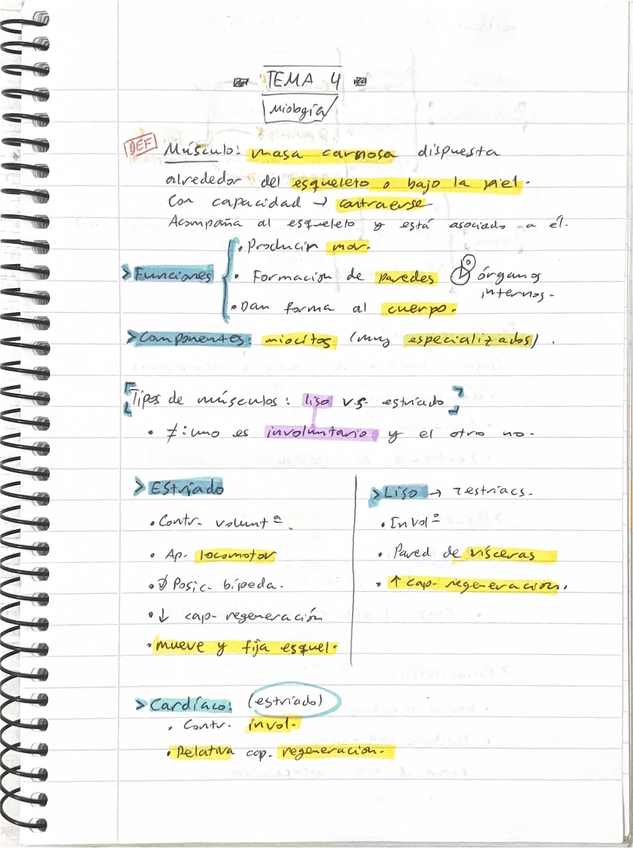 TEMA 4
Miología
DEF Músculo: masa carnosa dispuesta
alrededor del esqueleto o bajo la piel.
Con capacidad → contraerse.
Acompaña al esqueleto y está asociado a él.
> Funciones
• Producir mov.
• Formación de paredes órganos
internos.
• Dan forma al cuerpo.
> Componentes: miocitos (muy especializados).
Tipos de músculos: liso v.s. estriado
• ≠: uno es involuntario y el otro no.
> Estriado
• Contr. volunt ª.
• Ap. locomotor
• Posic. bípeda.
• ↓ cap. regeneración
• mueve y fija esquel.
> Liso →
• Invol ª
• Pared de vísceras
• ↑ cap. regeneración.
> Cardíaco: (estriado)
• Contr. invol.
• Relativa cap. regeneracion.